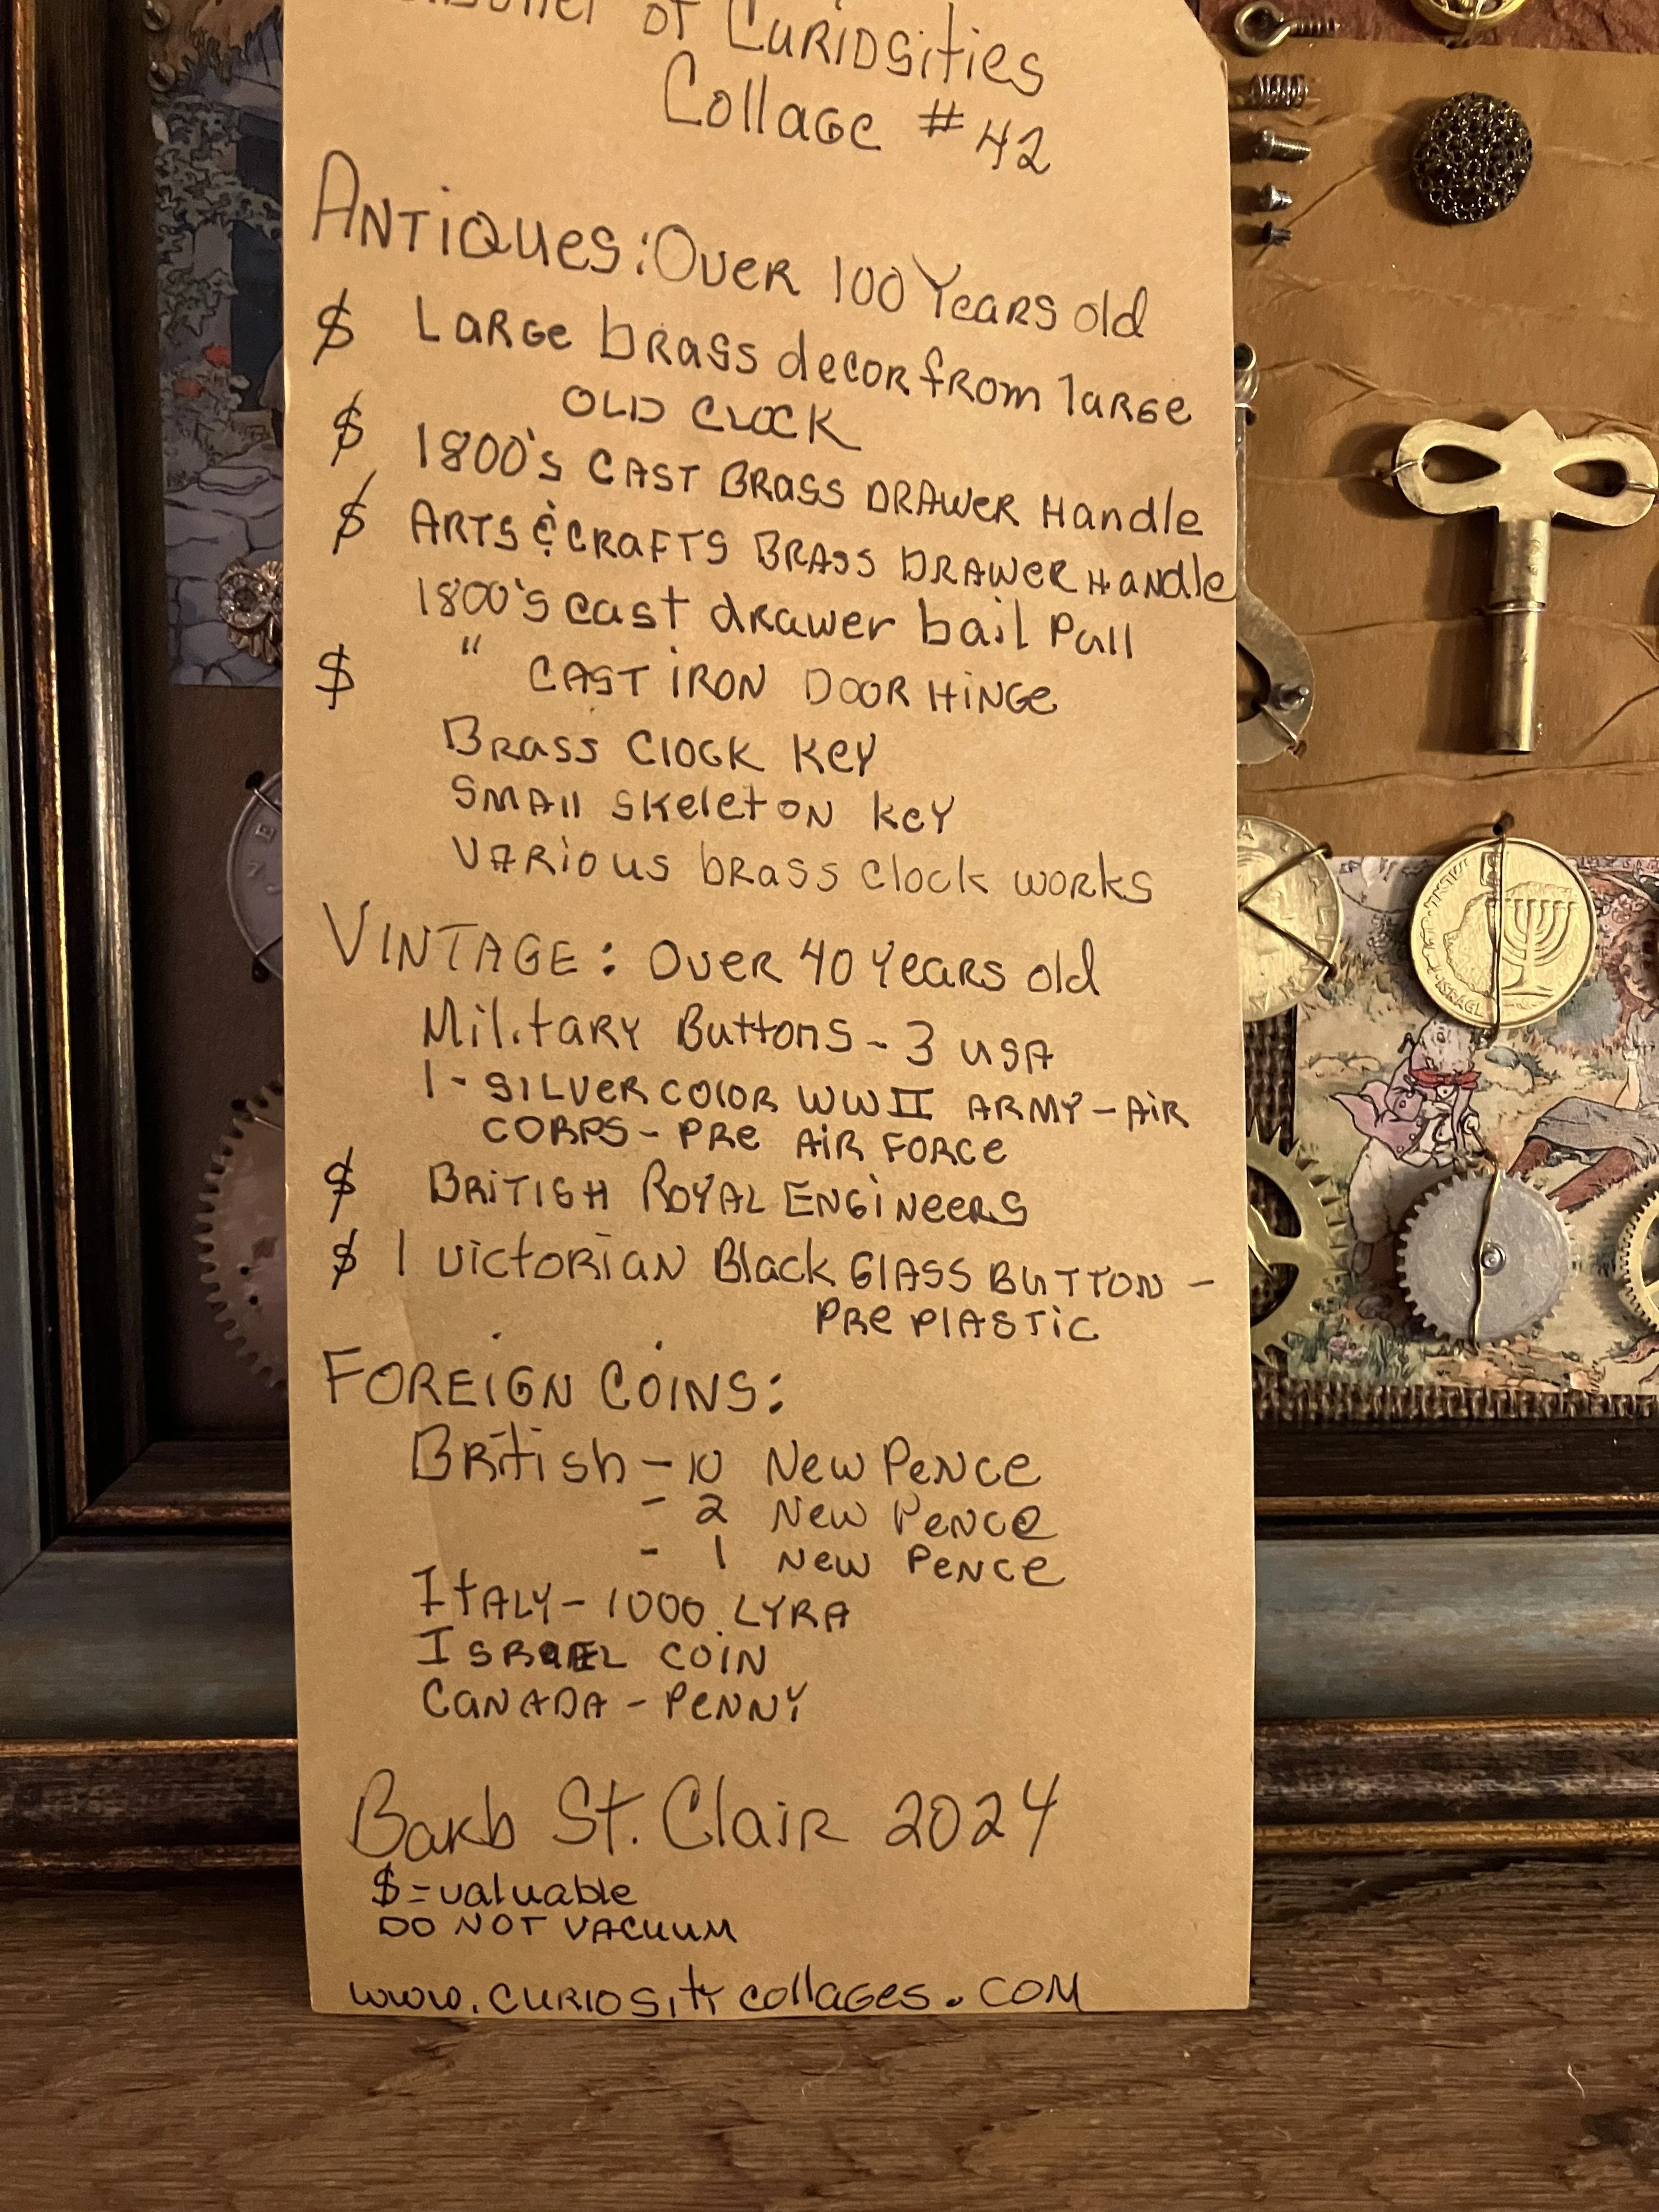 of Curiosities
Collage # 42
Antiques: Over 100 Years old
$ Large brass decor from large
old clock
$ 1800's cast brass drawer handle
$ Arts & Crafts brass drawer handle
1800's cast drawer bail pull
$ " cast iron door hinge
Brass clock key
Small skeleton key
Various brass clock works
Vintage: Over 40 years old
Military Buttons - 3 USA
1 - silver color WW II Army - Air
Corps - pre Air Force
$ British Royal Engineers
$ 1 Victorian Black Glass Button -
pre plastic
Foreign Coins:
British - 10 New Pence
- 2 New Pence
- 1 New Pence
Italy - 1000 Lyra
Israel coin
Canada - Penny
Barb St. Clair 2024
$ = valuable
Do not vacuum
www.curiositycollages.com
ISRAEL